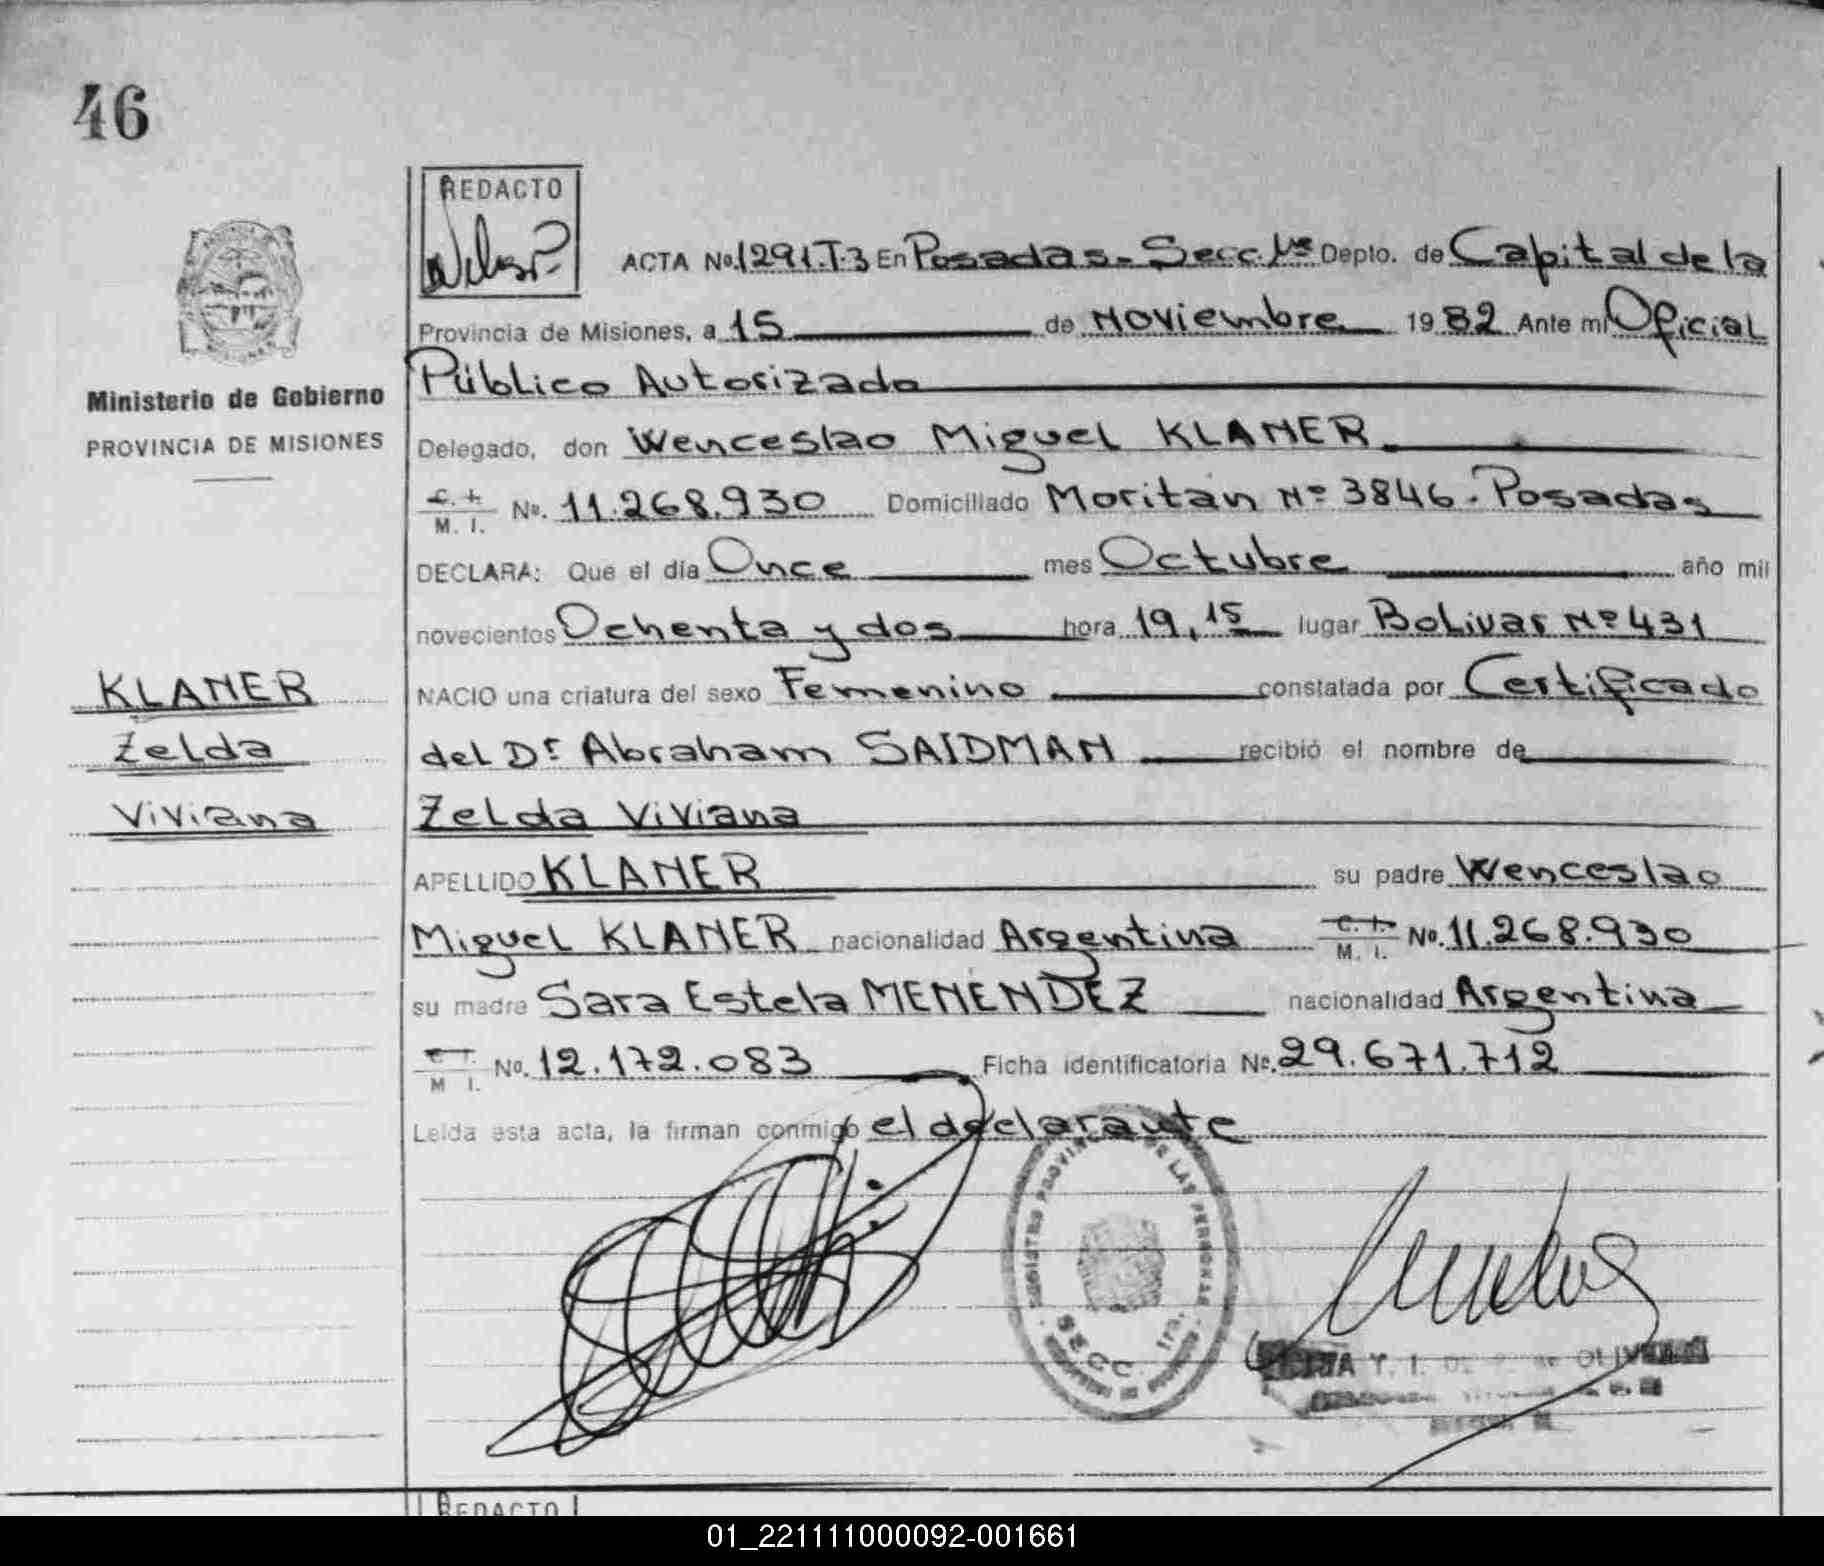 46
REDACTO
ACTA No. 1291.T.3 En Posadas - Secc. 1ra Depto. de Capital de la
Provincia de Misiones, a 15 de Noviembre 1982 Ante mi Oficial
Público Autorizado
Ministerio de Gobierno
PROVINCIA DE MISIONES
Delegado, don Wenceslao Miguel KLANER
C. I. M. I. No. 11.268.930 Domiciliado Moritán Nº 3846 - Posadas
DECLARA: Que el día Once mes Octubre año mil
novecientos Ochenta y dos hora 19,15 lugar Bolivar Nº 431
KLANER
NACIO una criatura del sexo Femenino constatada por Certificado
Zelda
del Dr. Abraham SAIDMAN recibió el nombre de
Viviana
Zelda Viviana
APELLIDO KLANER su padre Wenceslao
Miguel KLANER nacionalidad Argentina C. I. M. I. No. 11.268.930
su madre Sara Estela MENENDEZ nacionalidad Argentina
C. I. M. I. No. 12.172.083 Ficha identificatoria No. 29.671.712
Leida esta acta, la firman conmigo el declarante
REGISTRO PROVIN DE LAS PERSONAS
SECC. 1ra.
REDACTO
01_221111000092-001661